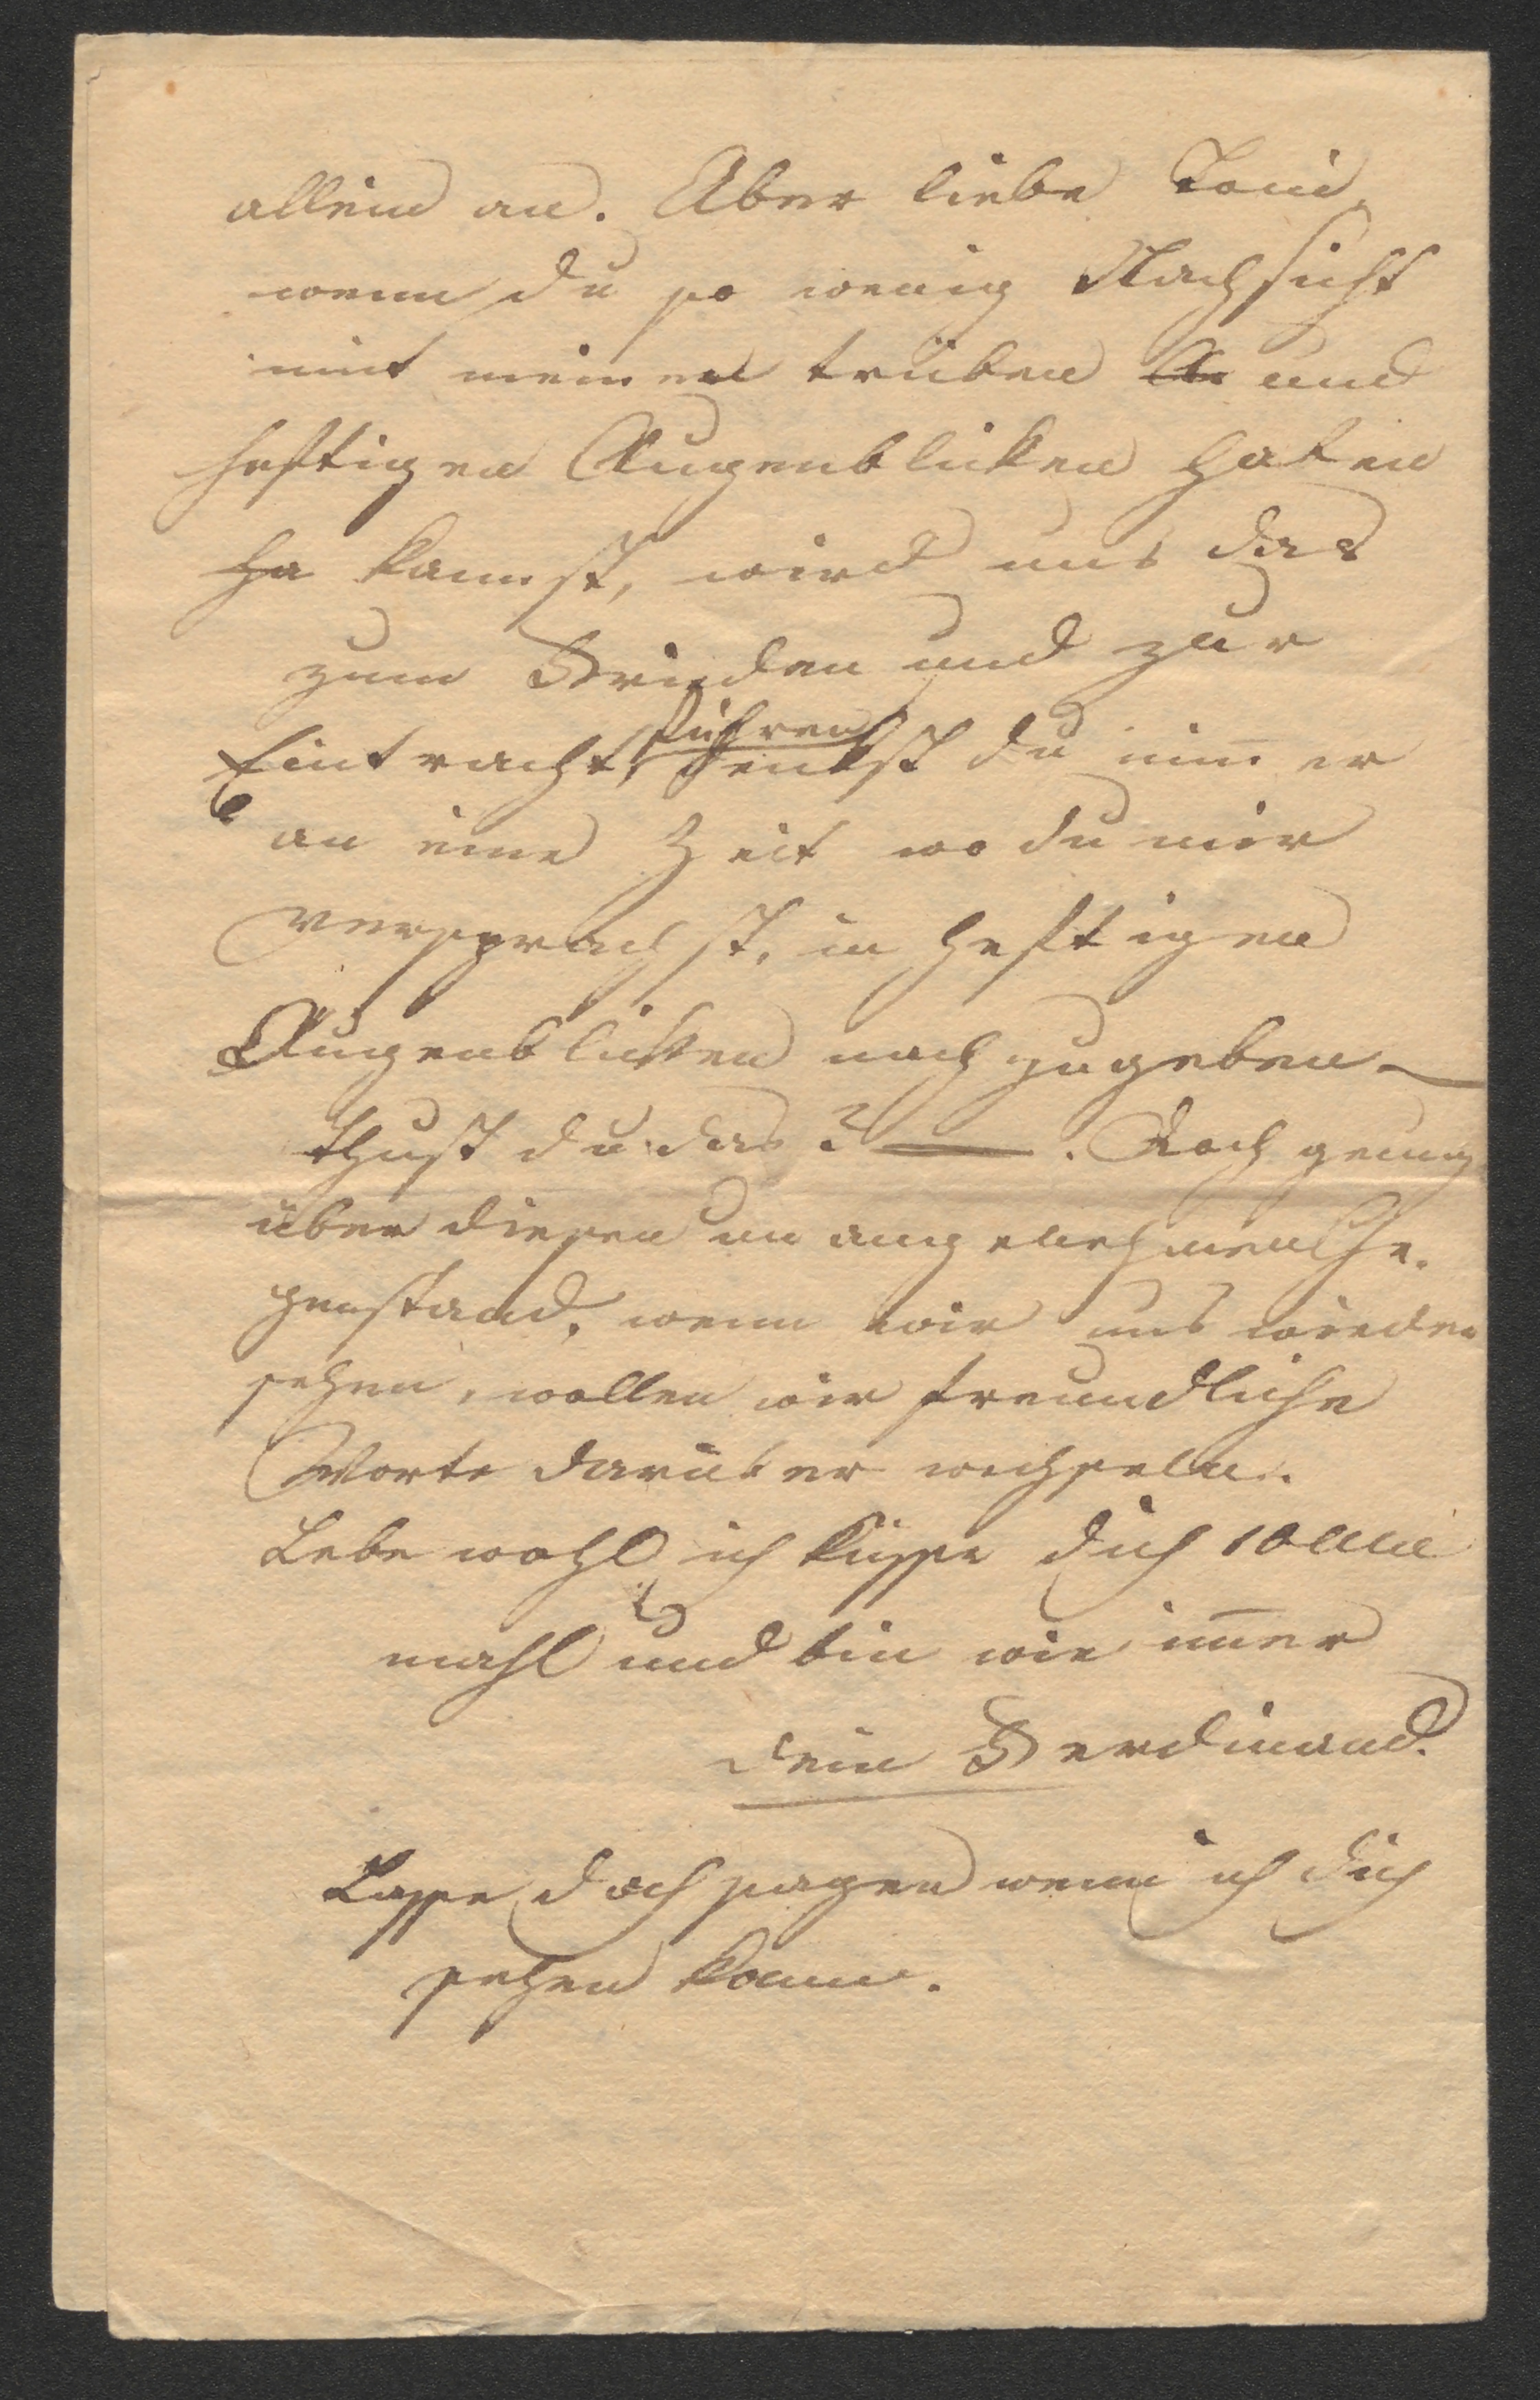 allein an. Aber liebe Toni,
wenn du so wenig Nachsicht
mit meinen trüben A und
heftigen Augenblicken haben
ha kannst, wird uns das
zum Frieden und zur
führen
Eintracht, denkst du nim̅er
an eine Zeit wo du mir
versprachst, in heftigen
Augenblicken nachzugeben —
thust du das? — . Doch genug
über diesen unangenehmen Ge-
genstand, wenn wir uns wieder
sehen, wollen wir freundliche
Worte darüber wechseln.
Lebe wohl ich küsse dich
mahl und bin wie im̅er
dein Ferdinand.
Lasse doch sagen wenn ich dich
sehen kann.